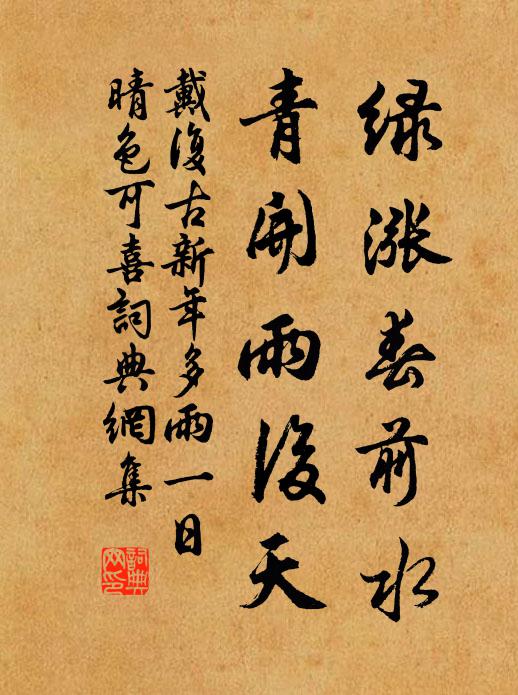 緑漲春前水
青開雨後天
戴復古新年多雨一日
晴色可喜詞典網集
詞典
网印